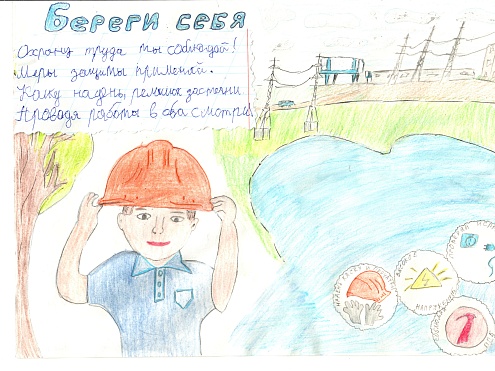 Береги себя
Охрану труда ты соблюдай!
Меры защиты применяй.
Каску надень, ремешок застегни.
Проводя работы в оба смотри.